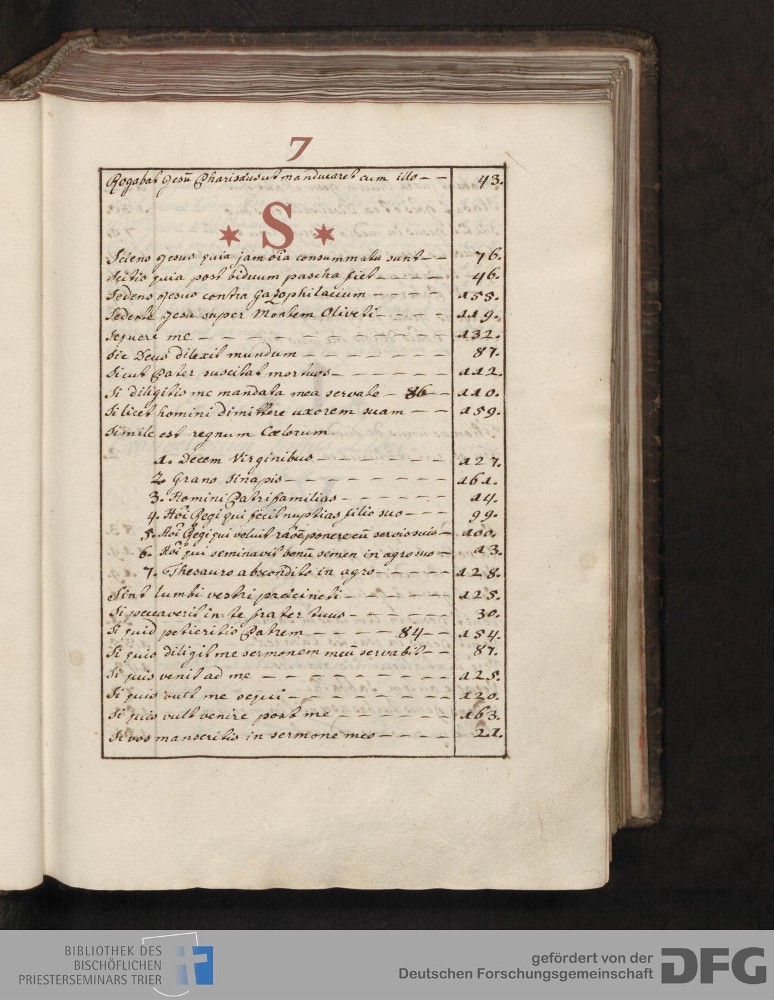 7
Rogabat Jesū Pharisæus ut manducaret cum illo – – 43.
* S *
Sciens Jesus quia jam oīa consummata sunt – – 76.
Scitis quia post biduum pascha fiet – – – – 46.
Sedens Jesus contra Gazophilacium – – – – 155.
Sedente Jesu super Montem Oliveti – – – – 119.
Sequere me – – – – – – – – – – 132.
Sic Deus dilexit mundum – – – – – – 87.
Sicut Pater suscitat mortuos – – – – – – 112.
Si diligitis me mandata mea servate – 86 – 110.
Si licet homini dimittere uxorem suam – – 159.
Simile est regnum Cœlorum
1. Decem Virginibus – – – – – – – 127.
2. Grano Sinapis – – – – – – – – 161.
3. Homini Patrifamilias – – – – – – 14.
4. Hōi Regi qui fecit nuptias filio suo – – – 99.
5. Hōi Regi qui voluit raōē ponere cū servis suis – 100.
6. Hōi qui seminavit bonū semen in agro suo – 13.
7. Thesauro abscondito in agro – – – – – 128.
Sint lumbi vestri præcincti – – – – – – 125.
Si peccaverit in te frater tuus – – – – – 30.
Si quid petieritis Patrem – – – – – 84 – – 154.
Si quis diligit me sermonem meū servabit – – 87.
Si quis venit ad me – – – – – – – – 125.
Si quis vult me sequi – – – – – – – 120.
Si quis vult venire post me – – – – – – 163.
Si vos manseritis in sermone meo – – – – 21.
BIBLIOTHEK DES
BISCHÖFLICHEN
PRIESTERSEMINARS TRIER
gefördert von der
Deutschen Forschungsgemeinschaft
DFG